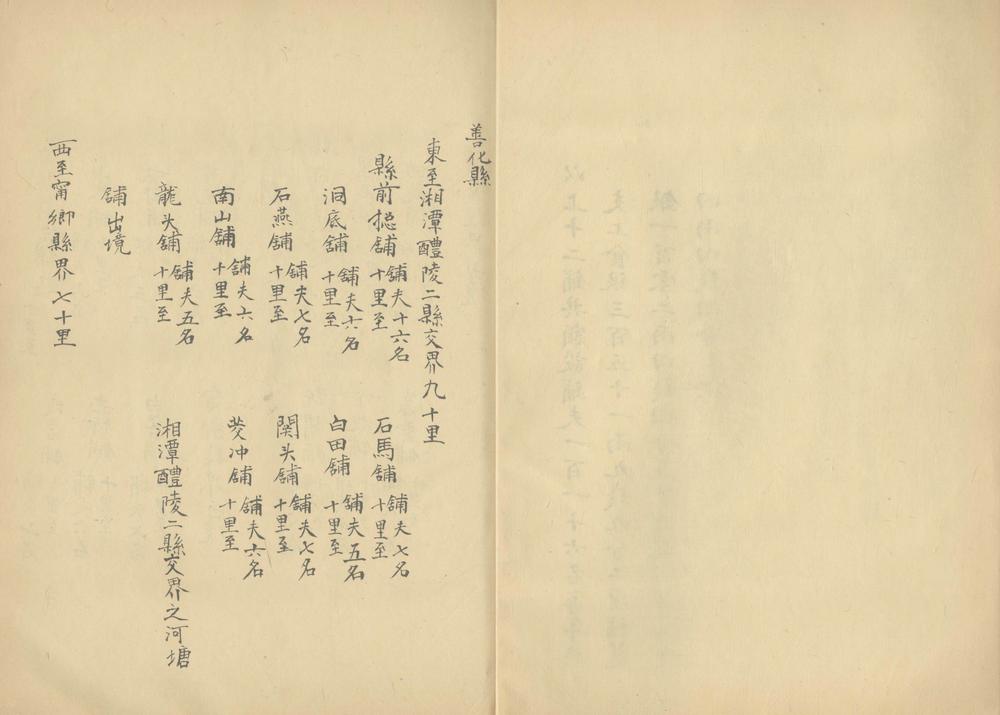 善化縣
東至湘潭醴陵二縣交界九十里
縣前摠舖 舖夫十六名 十里至 石馬舖 舖夫七名 十里至
洞底舖 舖夫六名 十里至 白田舖 舖夫五名 十里至
石燕舖 舖夫七名 十里至 関头舖 舖夫七名 十里至
南山舖 舖夫六名 十里至 茭冲舖 舖夫六名 十里至
龍头舖 舖夫五名 十里至 湘潭醴陵二縣交界之河塘
舖出境
西至甯鄉縣界七十里